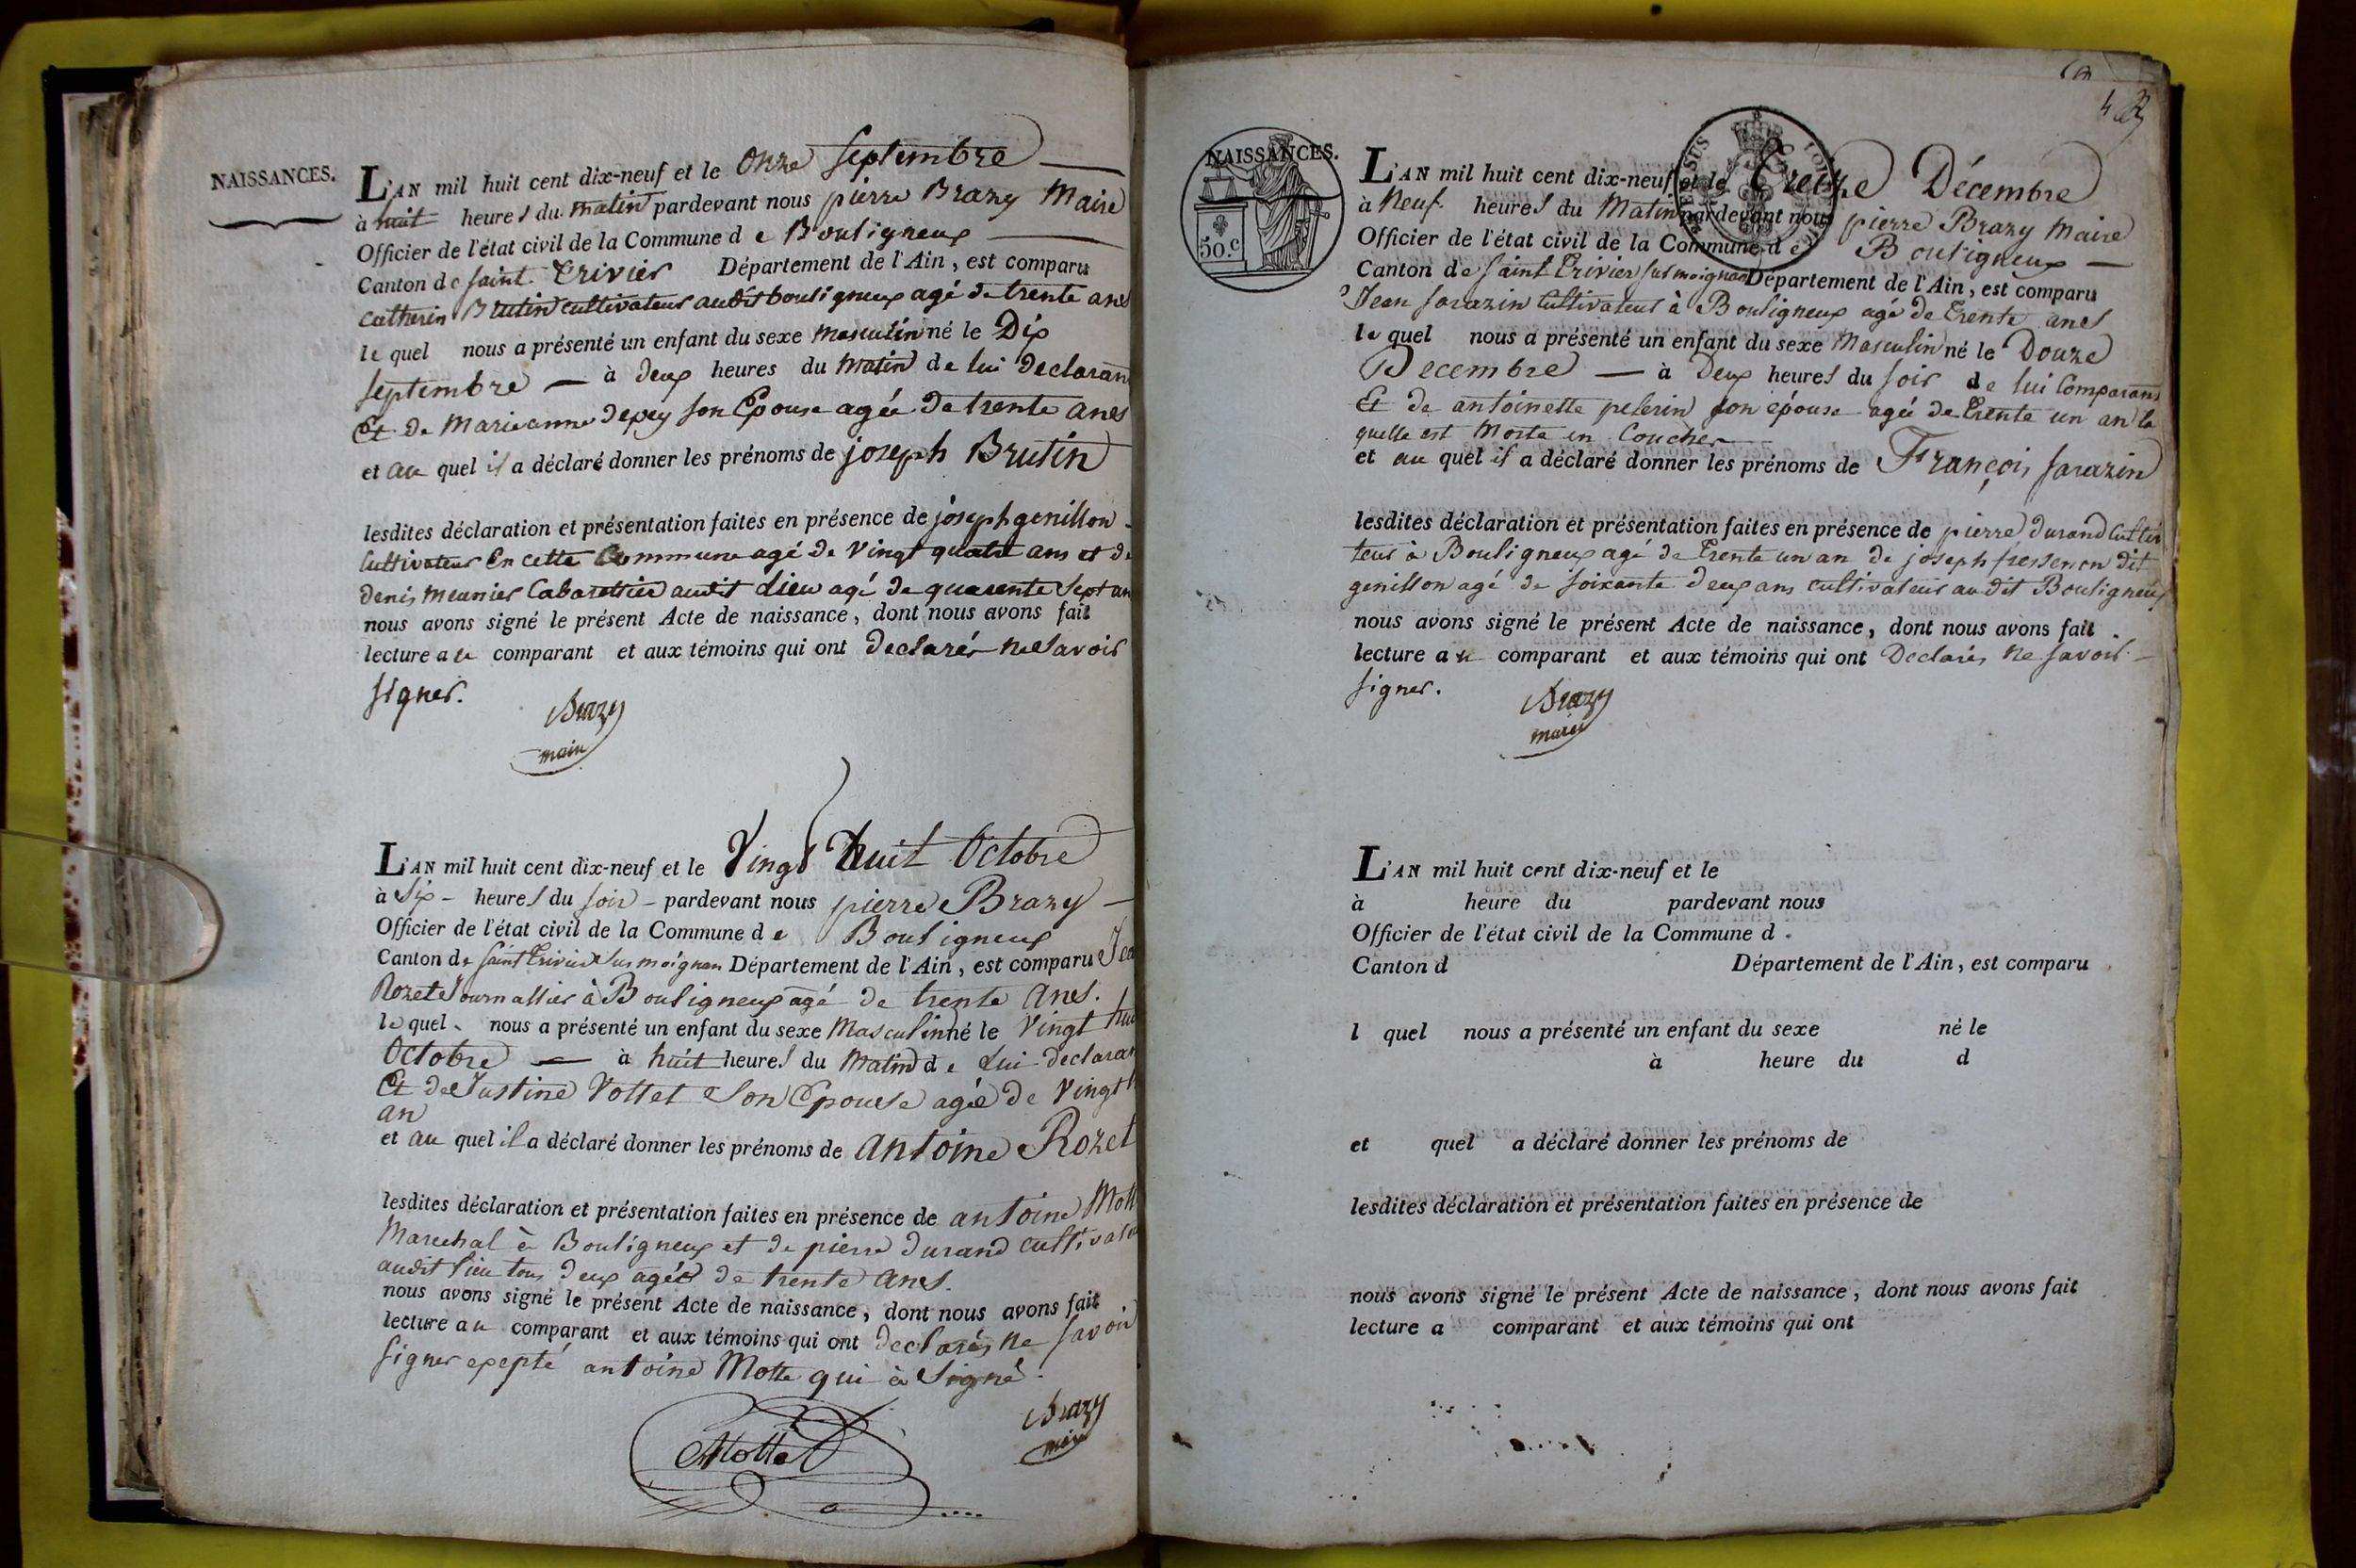 NAISSANCES.
L'AN mil huit cent dix-neuf et le Onze Septembre
à huit heures du matin pardevant nous pierre Brazy Maire
Officier de l'état civil de la Commune de Bouligneux
Canton de saint Trivier Département de l'Ain, est comparu
Brutin cultivateur audit bouligneux agé de trente ans
le quel nous a présenté un enfant du sexe masculin né le Dix
septembre — à deux heures du matin de lui Declarant
Et de Marieanne depey son Epouse agée de trente anes
et au quel il a déclaré donner les prénoms de joseph Brutin
lesdites déclaration et présentation faites en présence de joseph genillon
Cultivateur En cette Commune agé de vingt quatre ans et de
denis meunier Cabarettier audit Lieu agé de quarente sept an
nous avons signé le présent Acte de naissance, dont nous avons fait
lecture au comparant et aux témoins qui ont declarés ne savoir
signer.
Brazy
maire
L'AN mil huit cent dix-neuf et le Vingt huit Octobre
à Six - heures du soir - pardevant nous pierre Brazy
Officier de l'état civil de la Commune de Bouligneux
Canton de saint Trivier sur moignan Département de l'Ain, est comparu Jean
Rozet Journallier à Bouligneux agé de trente anes.
le quel nous a présenté un enfant du sexe Masculin né le Vingt huit
Octobre — à huit heures du Matin de Lui declarant
Et de Justine Vollet Son Epouse agée de Vingt
an
et au quel il a déclaré donner les prénoms de antoine Rozet
lesdites déclaration et présentation faites en présence de antoine Motte
Marechal à Bouligneux et de pierre durand cultivateur
audit lieu tous deux agés de trente anes.
nous avons signé le présent Acte de naissance, dont nous avons fait
lecture au comparant et aux témoins qui ont declarés ne savoir
signer exepté antoine Motte qui à Signé.
Motte
Brazy
maire
50.c
NAISSANCES.
L'AN mil huit cent dix-neuf et le Treize Décembre
à Neuf heures du Matin pardevant nous pierre Brazy Maire
Officier de l'état civil de la Commune de Bouligneux —
Canton de Saint Trivier sur moignan Département de l'Ain, est comparu
Jean sarazin Cultivateur à Bouligneux agé de trente anes
le quel nous a présenté un enfant du sexe Masculin né le Douze
Decembre — à Deux heures du soir de lui Comparant
Et de antoinette pelerin son épouse agée de trente un an la
quelle est Morte en Coucher
et au quel il a déclaré donner les prénoms de François sarazin
lesdites déclaration et présentation faites en présence de pierre durand Cultiva
teur à Bouligneux agé de trente un an de joseph dit
genillon agé de soixante deux ans cultivateurs audit Bouligneux
nous avons signé le présent Acte de naissance, dont nous avons fait
lecture au comparant et aux témoins qui ont Declarés ne savoir
signer.
Brazy
maire
L'AN mil huit cent dix-neuf et le
à heure du pardevant nous
Officier de l'état civil de la Commune d
Canton d Département de l'Ain, est comparu
l quel nous a présenté un enfant du sexe né le
à heure du d
et quel a déclaré donner les prénoms de
lesdites déclaration et présentation faites en présence de
nous avons signé le présent Acte de naissance, dont nous avons fait
lecture a comparant et aux témoins qui ont